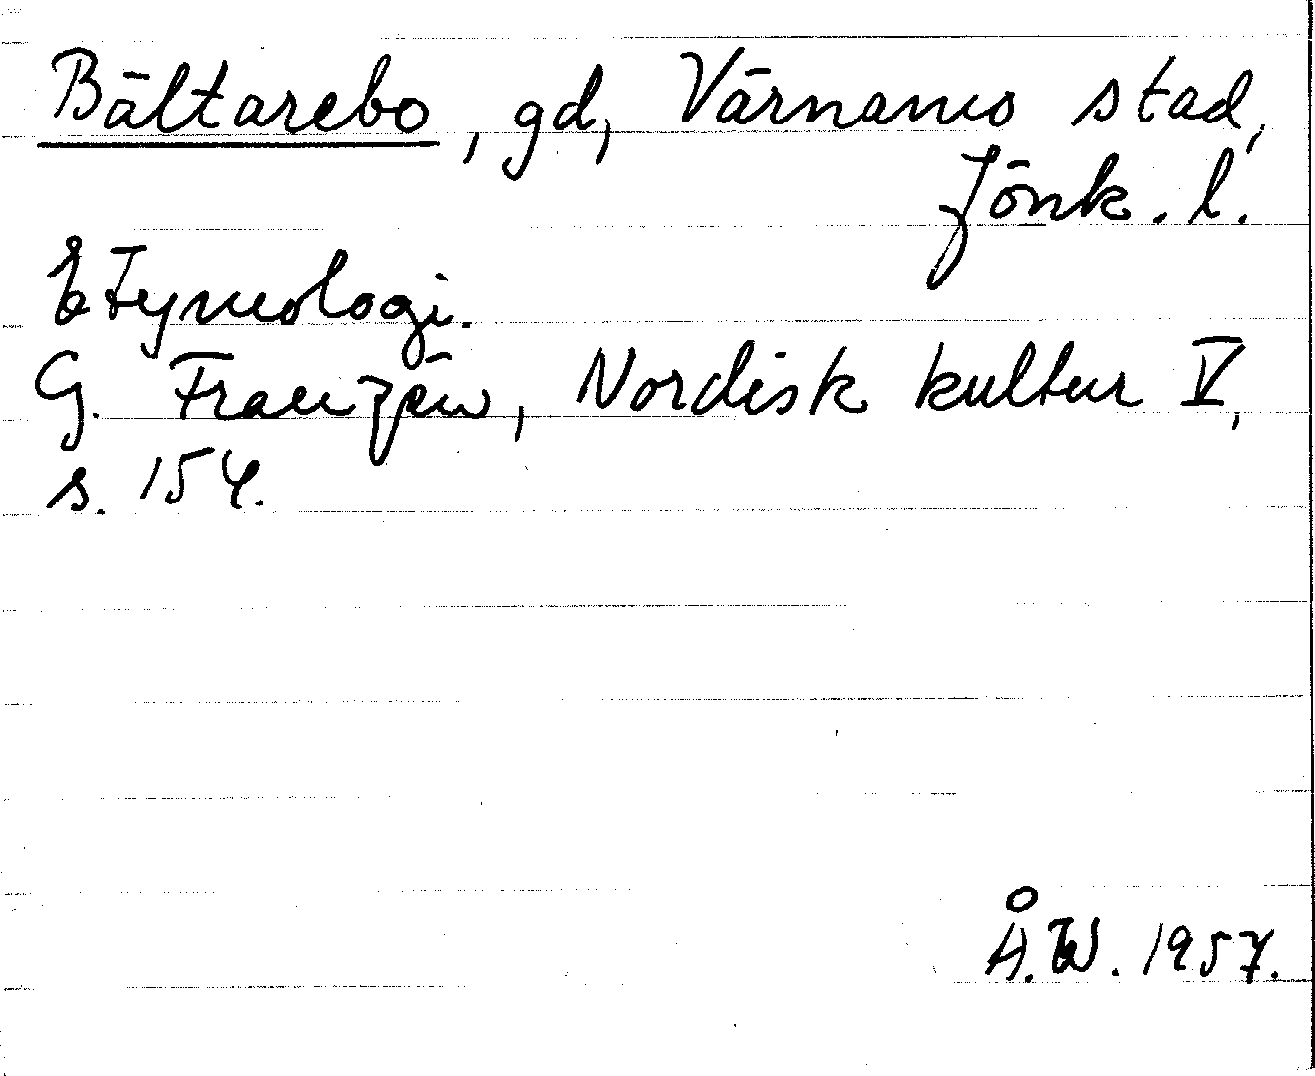 Bältarebo, gd, Värnamo stad,
Jönk. l.
Etymologi.
G. Franzén, Nordisk kultur V,
s. 154.
Å.W. 1957.